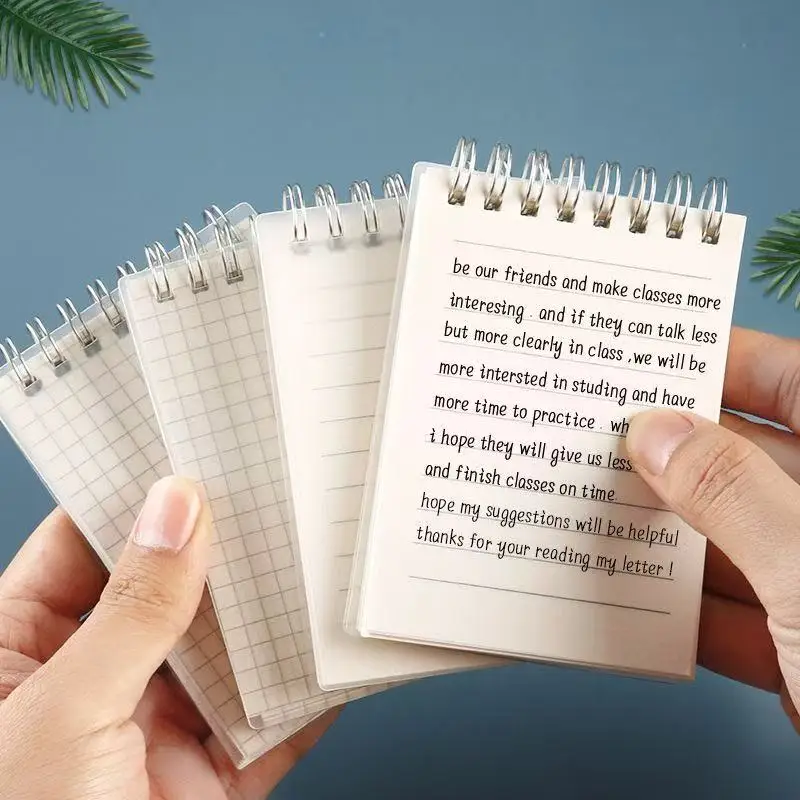 be our friends and make classes more
interesing . and if they can talk less
but more clearly in class ,we will be
more intersted in studing and have
more time to practice .
i hope they will give us less
and finish classes on time.
hope my suggestions will be helpful
thanks for your reading my letter !